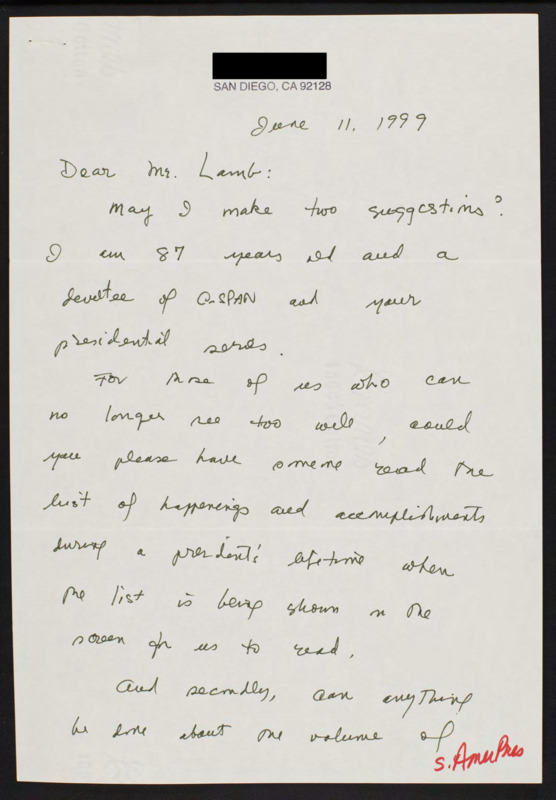 SAN DIEGO, CA 92128
June 11, 1999
Dear Mr. Lamb:
May I make two suggestions?
I am 87 years old and a
devotee of C-SPAN and your
presidential series.
For those of us who can
no longer see too well, could
you please have someone read the
list of happenings and accomplishments
during a president's lifetime when
the list is being shown on the
screen for us to read.
And secondly, can anything
be done about the volume of
S. AmerPres